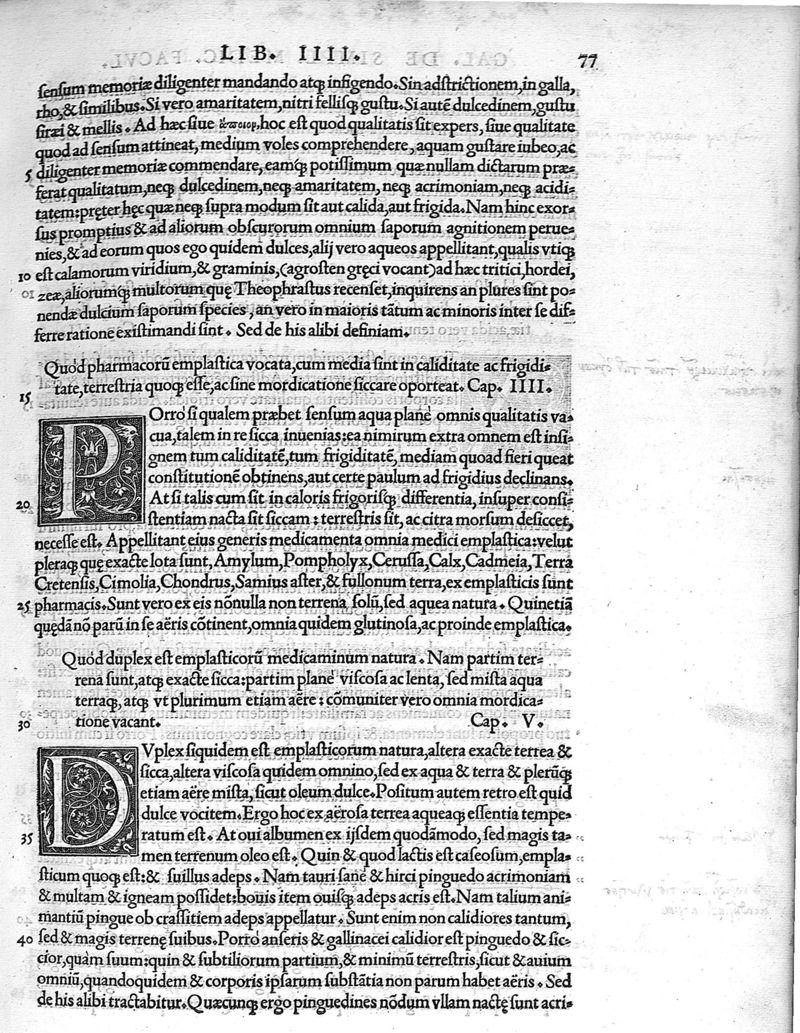 LIB. IIII. 77
sensum memoriæ diligenter mandando atq; infigendo. Sin adstrictionem, in galla,
rho, & similibus. Si vero amaritatem, nitri fellisq; gustu. Si autē dulcedinem, gustu
siræi & mellis. Ad hæc siue ἄποιον, hoc est quod qualitatis sit expers, siue qualitate
quod ad sensum attineat, medium voles comprehendere, aquam gustare iubeo, ac
5 diligenter memoriæ commendare, eamq; potissimum quæ nullam dictarum præ-
ferat qualitatum, neq; dulcedinem, neq; amaritatem, neq; acrimoniam, neq; acidi-
tatem: pręter hęc quæ neq; supra modum sit aut calida, aut frigida. Nam hinc exor-
sus promptius & ad aliorum obscurorum omnium saporum agnitionem perue-
nies, & ad eorum quos ego quidem dulces, alij vero aqueos appellitant, qualis vtiq;
10 est calamorum viridium, & graminis, (agrosten gręci vocant) ad hæc tritici, hordei,
zeæ, aliorumq; multorum quę Theophrastus recenset, inquirens an plures sint po-
nendæ dulcium saporum species, an vero in maioris tātum ac minoris inter se dif-
ferre ratione existimandi sint. Sed de his alibi definiam.
Quòd pharmacorū emplastica vocata, cum media sint in caliditate ac frigidi-
tate, terrestria quoq; esse, ac sine mordicatione siccare oporteat. Cap. IIII.
15
POrro si qualem præbet sensum aqua planè omnis qualitatis va-
cua, talem in re sicca inuenias: ea nimirum extra omnem est insi-
gnem tum caliditatē, tum frigiditatē, mediam quoad fieri queat
constitutionē obtinens, aut certe paulum ad frigidius declinans.
20 At si talis cum sit in caloris frigorisq; differentia, insuper consi-
stentiam nacta sit siccam: terrestris sit, ac citra morsum desiccet,
necesse est. Appellitant eius generis medicamenta omnia medici emplastica: velut
pleraq; quę exacte lota sunt, Amylum, Pompholyx, Cerussa, Calx, Cadmeia, Terra
Cretensis, Cimolia, Chondrus, Samius aster, & fullonum terra, ex emplasticis sunt
25 pharmacis. Sunt vero ex eis nōnulla non terrena solū, sed aquea natura. Quinetiā
quędā nō parū in se aëris cōtinent, omnia quidem glutinosa, ac proinde emplastica.
Quòd duplex est emplasticorū medicaminum natura. Nam partim ter-
rena sunt, atq; exacte sicca: partim planè viscosa ac lenta, sed mista aqua
terraq;, atq; vt plurimum etiam aëre: cōmuniter vero omnia mordica-
30 tione vacant. Cap. V.
DVplex siquidem est emplasticorum natura, altera exacte terrea &
sicca, altera viscosa quidem omnino, sed ex aqua & terra & plerūq;
etiam aëre mista, sicut oleum dulce. Positum autem retro est quid
dulce vocitem. Ergo hoc ex aërosa terrea aqueaq; essentia tempe-
35 ratum est. At oui albumen ex ijsdem quodāmodo, sed magis ta-
men terrenum oleo est. Quin & quod lactis est caseosum, empla-
sticum quoq; est: & suillus adeps. Nam tauri sanè & hirci pinguedo acrimoniam
& multam & igneam possidet: bouis item ouisq; adeps acris est. Nam talium ani-
mantiū pingue ob crassitiem adeps appellatur. Sunt enim non calidiores tantum,
40 sed & magis terrenę suibus. Porrò anseris & gallinacei calidior est pinguedo & sic-
cior, quàm suum: quin & subtiliorum partium, & minimū terrestris, sicut & auium
omniū, quandoquidem & corporis ipsarum substātia non parum habet aëris. Sed
de his alibi tractabitur. Quæcunq; ergo pinguedines nōdum vllam nactę sunt acri-